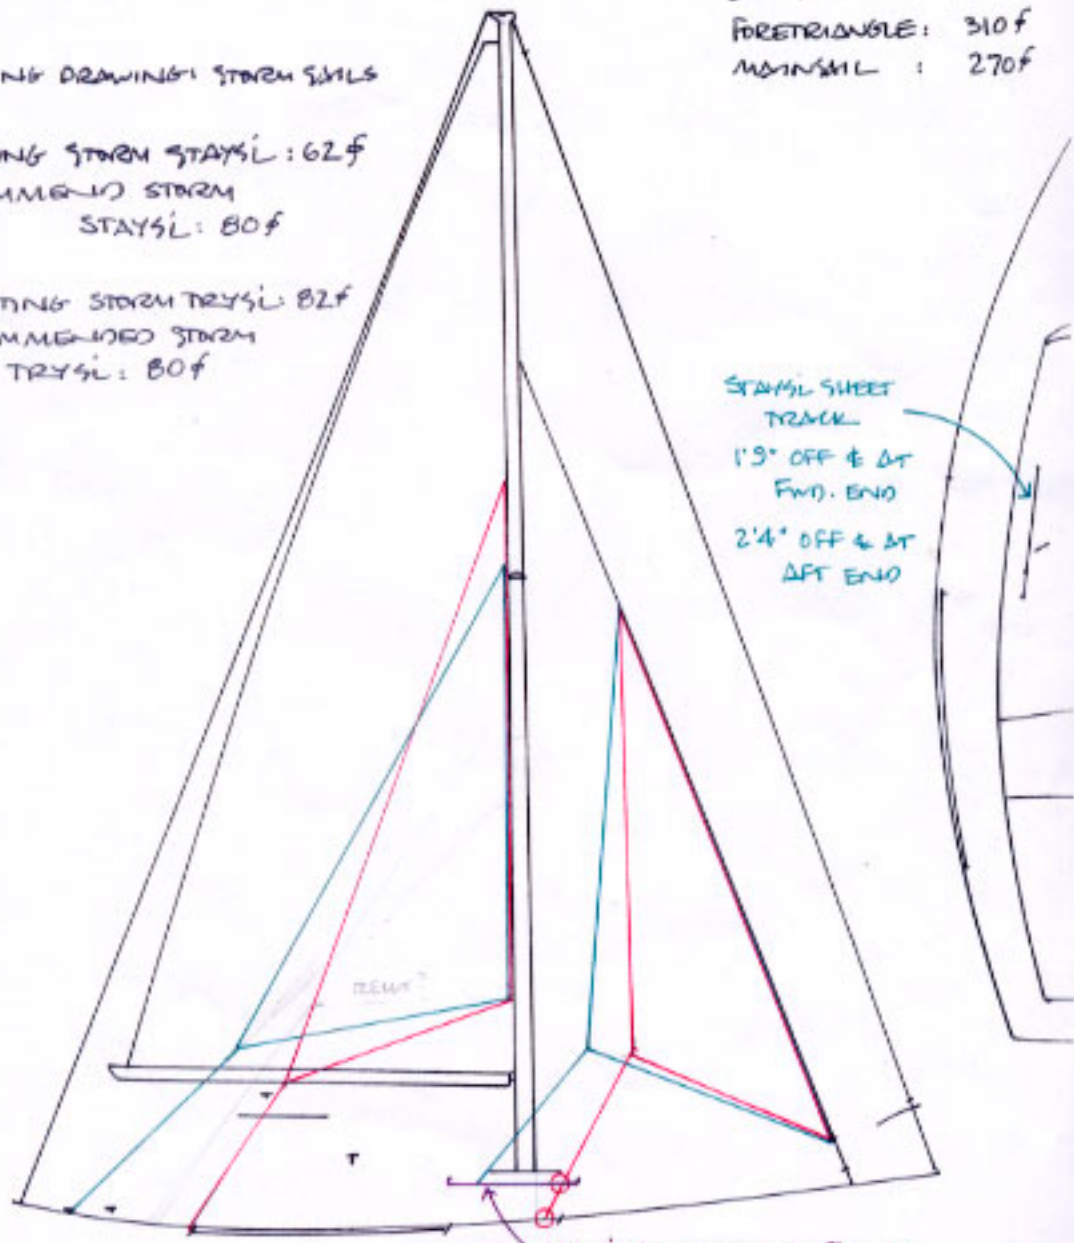 FORETRIANGLE: 310 f
MAINSAIL : 270 f
NG DRAWING: STORM SAILS
NG STORM STAYS'L: 62 f
MMEND STORM
STAYS'L: 80 f
TING STORM TRYS'L: 82 f
MMENDED STORM
TRYS'L: 80 f
STAYS'L SHEET
TRACK
1'9" OFF ℄ AT
FWD. END
2'4" OFF ℄ AT
AFT END